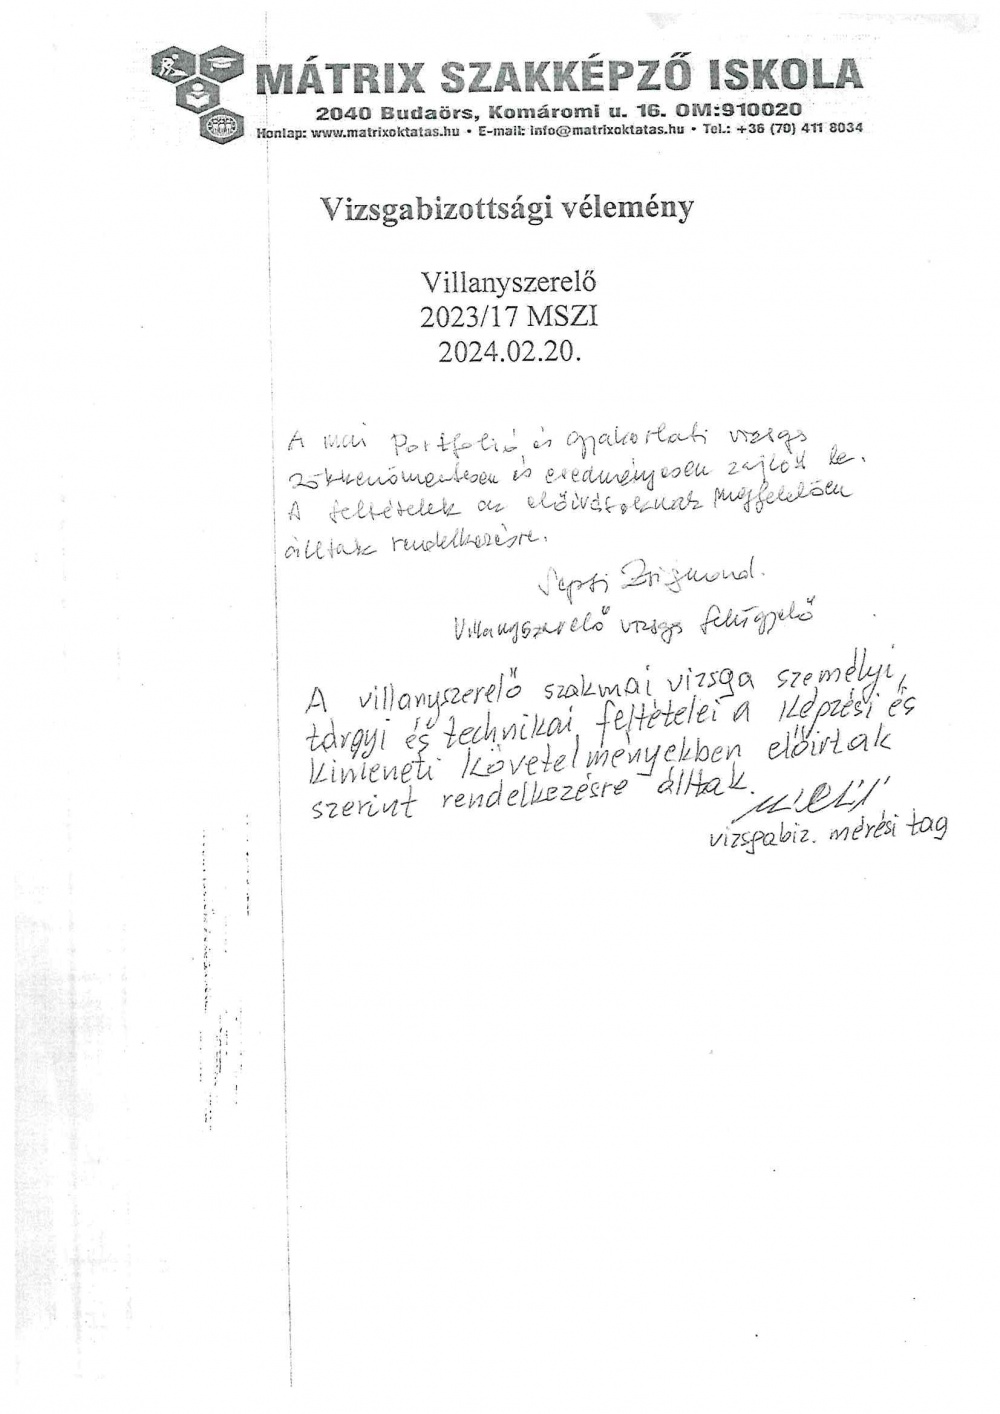 MÁTRIX SZAKKÉPZŐ ISKOLA
2040 Budaörs, Komáromi u. 16. OM:910020
Honlap: www.matrixoktatas.hu • E-mail: info@matrixoktatas.hu • Tel.: +36 (70) 411 8034
Vizsgabizottsági vélemény
Villanyszerelő
2023/17 MSZI
2024.02.20.
A mai Portfolió és gyakorlati vizsga
zökkenőmentesen és eredményesen zajlott le.
A feltételek az előírásoknak megfelelően
álltak rendelkezésre.
Zsigmond.
Villanyszerelő vizsga felügyelő
A villanyszerelő szakmai vizsga személyi,
tárgyi és technikai feltételei a Képzési és
Kimeneti Követelményekben előírtak
szerint rendelkezésre álltak.
vizsgabiz. mérési tag